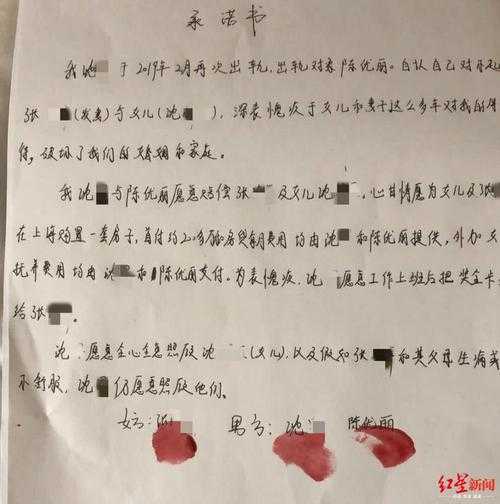 承诺书
我沈 于2019年2月再次出轨,出轨对象陈优丽。自认自己对不起
张 (发妻)与女儿(沈 ),深表愧疚于女儿和妻子这么多年对我的
任,破坏了我们的婚姻和家庭。
我沈 与陈优丽愿意赔偿张 及女儿沈 ,心甘情愿为女儿及张
在上海购置一套房子,首付约 房贷每月费用均由沈 和陈优丽提供,外加女
抚养费用均由沈 和陈优丽交付。为表愧疚,沈 愿意工作上班后把奖金卡
给张 。
沈 愿意全心全意照顾沈 (女儿),以及假如张 和其父母生病或
不舒服,沈 仍愿意照顾他们。
女方:张 男方:沈 陈优丽
红星新闻